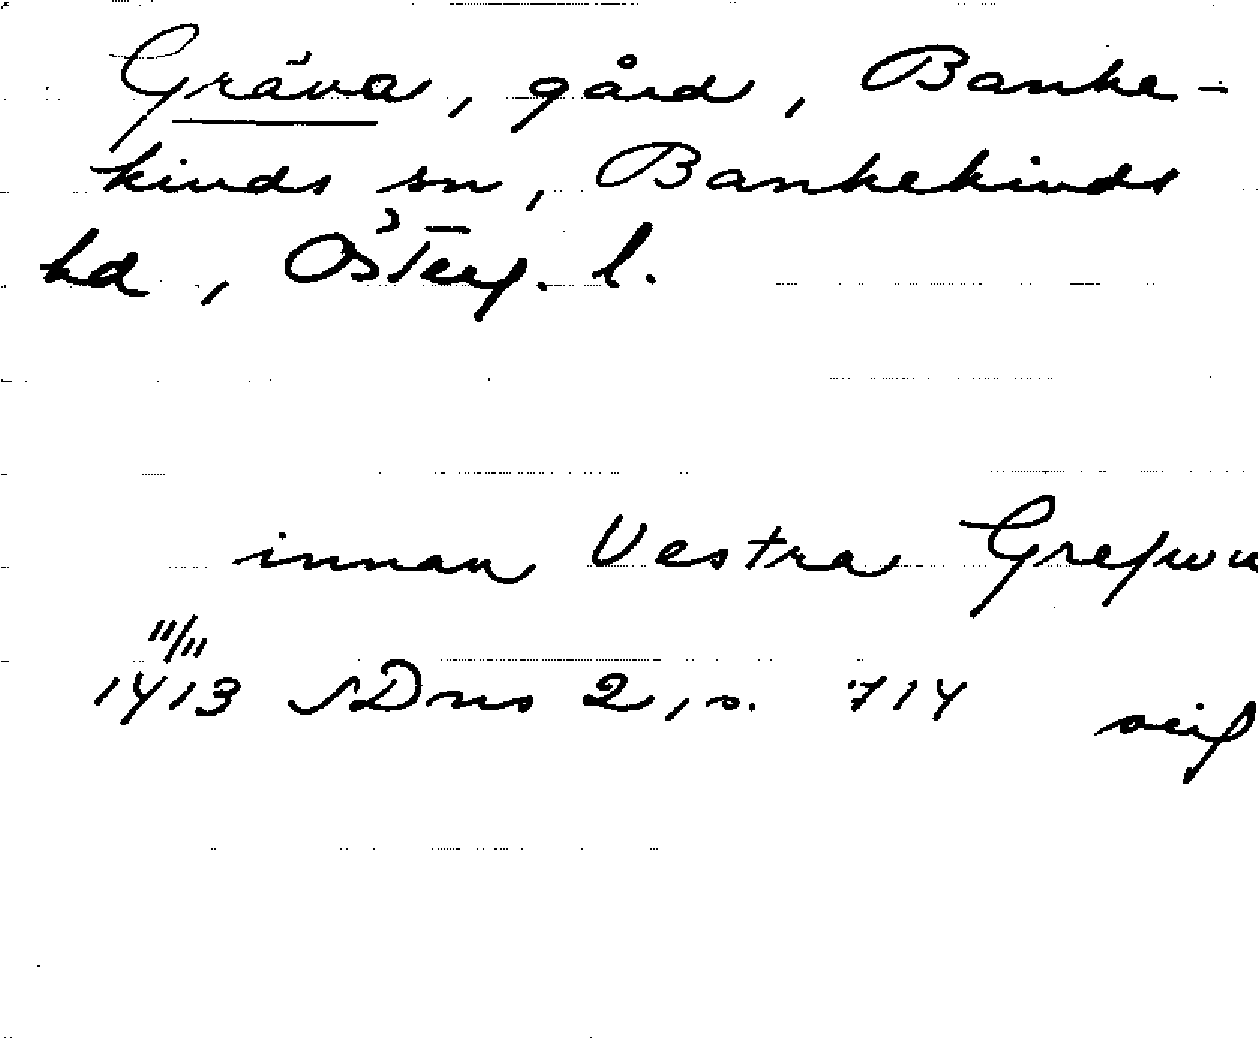 Gräva, gård, Banke-
kinds sn, Bankekinds
hd, Österg. l.
innan Vestra Grefwu
11/11
1413 SDns 2, s. 714 orig